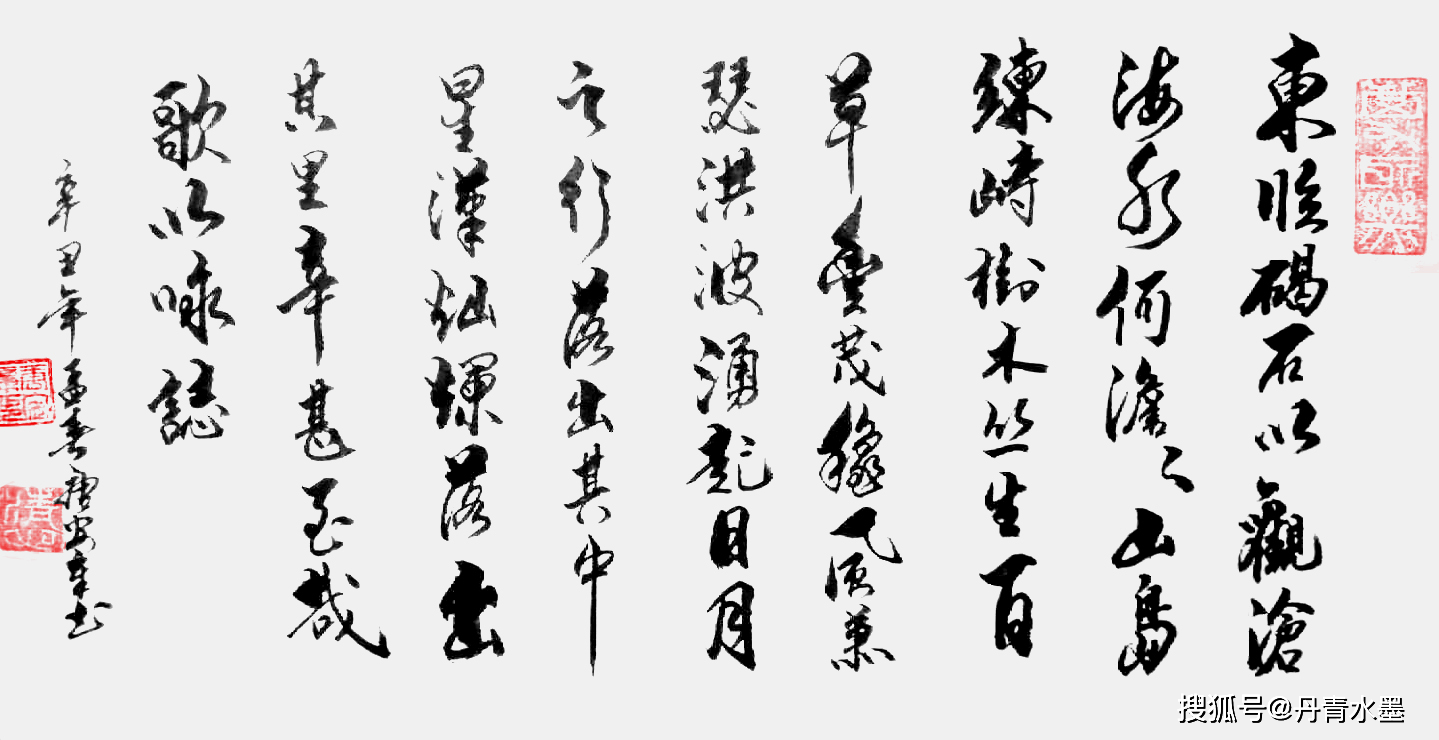 東臨碣石以觀滄
海水何澹〻山島
鍊峙樹木丛生百
草豐茂穐風蕭
瑟洪波湧起日月
之行落出其中
星漢灿爛落出
其里幸甚至哉
歌以咏誌
辛丑年孟春
搜狐号@丹青水墨